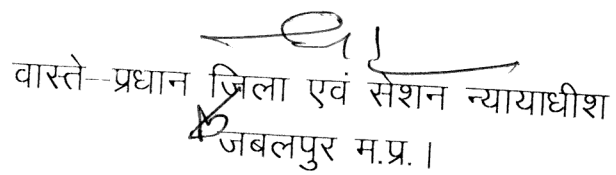 वास्ते--प्रधान जिला एवं सेशन न्यायाधीश
जबलपुर म.प्र.।